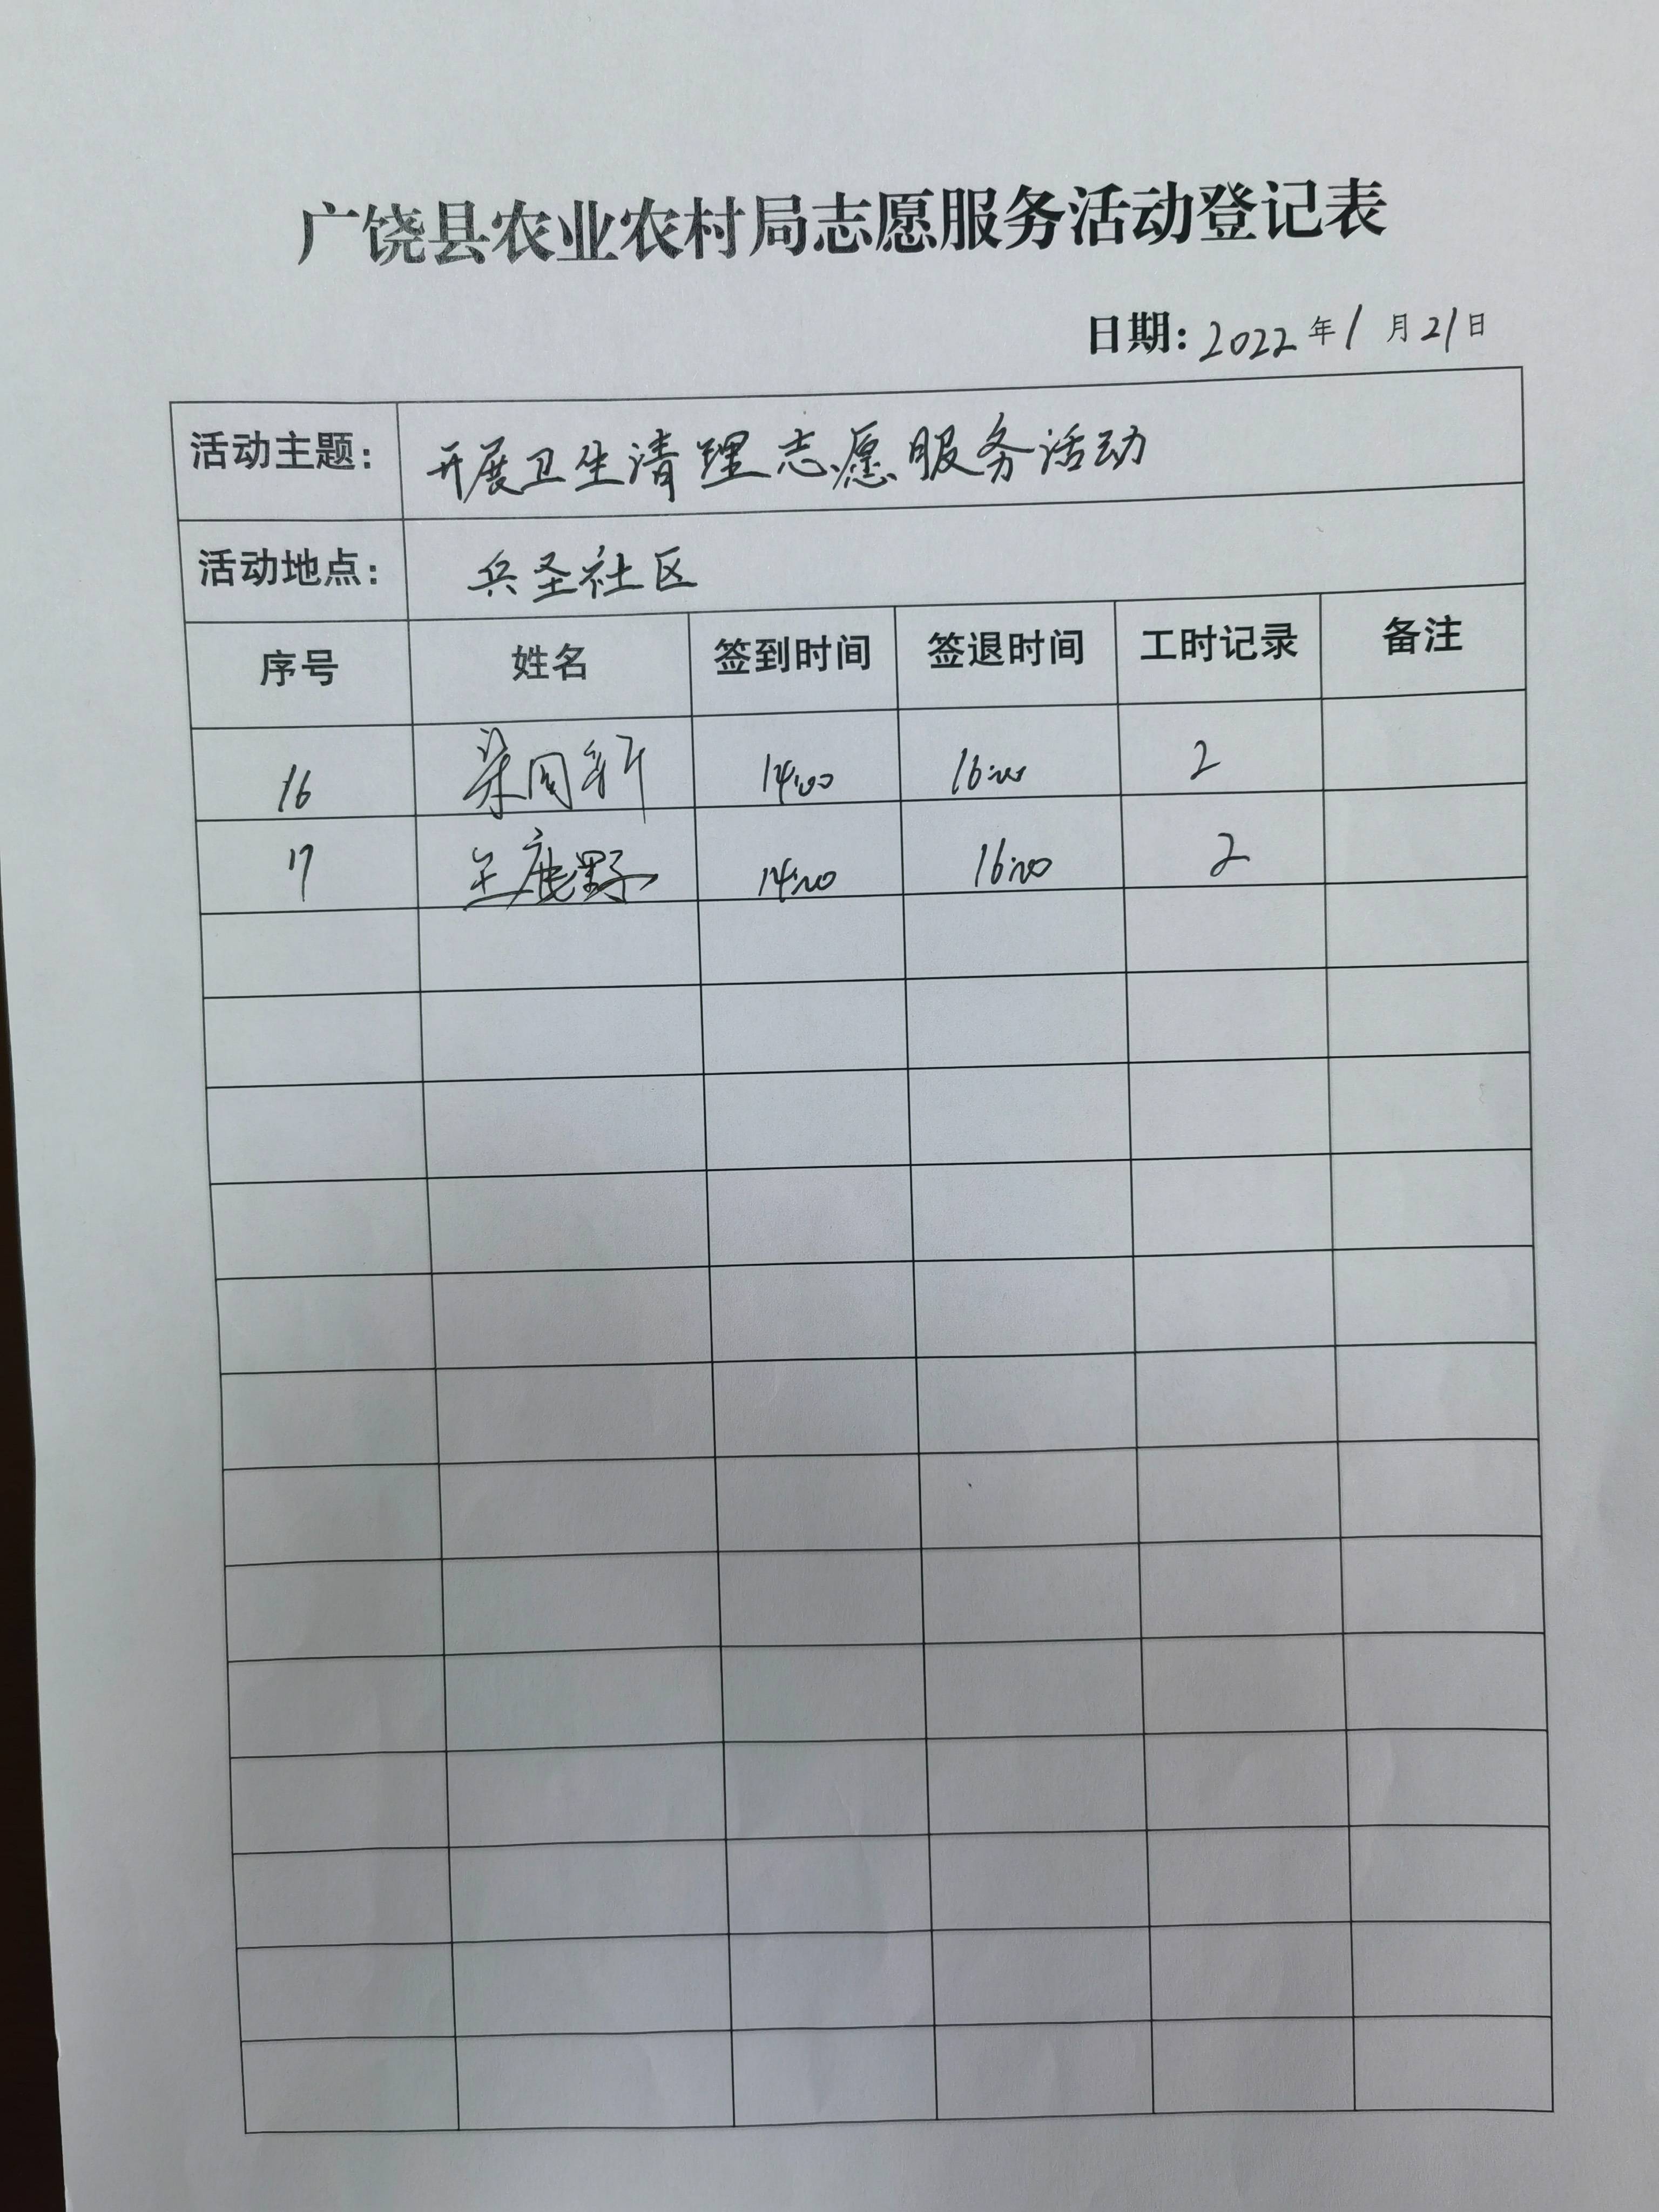 广饶县农业农村局志愿服务活动登记表
日期：2022年1月21日
活动主题： 开展卫生清理志愿服务活动
活动地点： 兵圣社区
序号 姓名 签到时间 签退时间 工时记录 备注
16 14:00 16:00 2
17 14:00 16:00 2